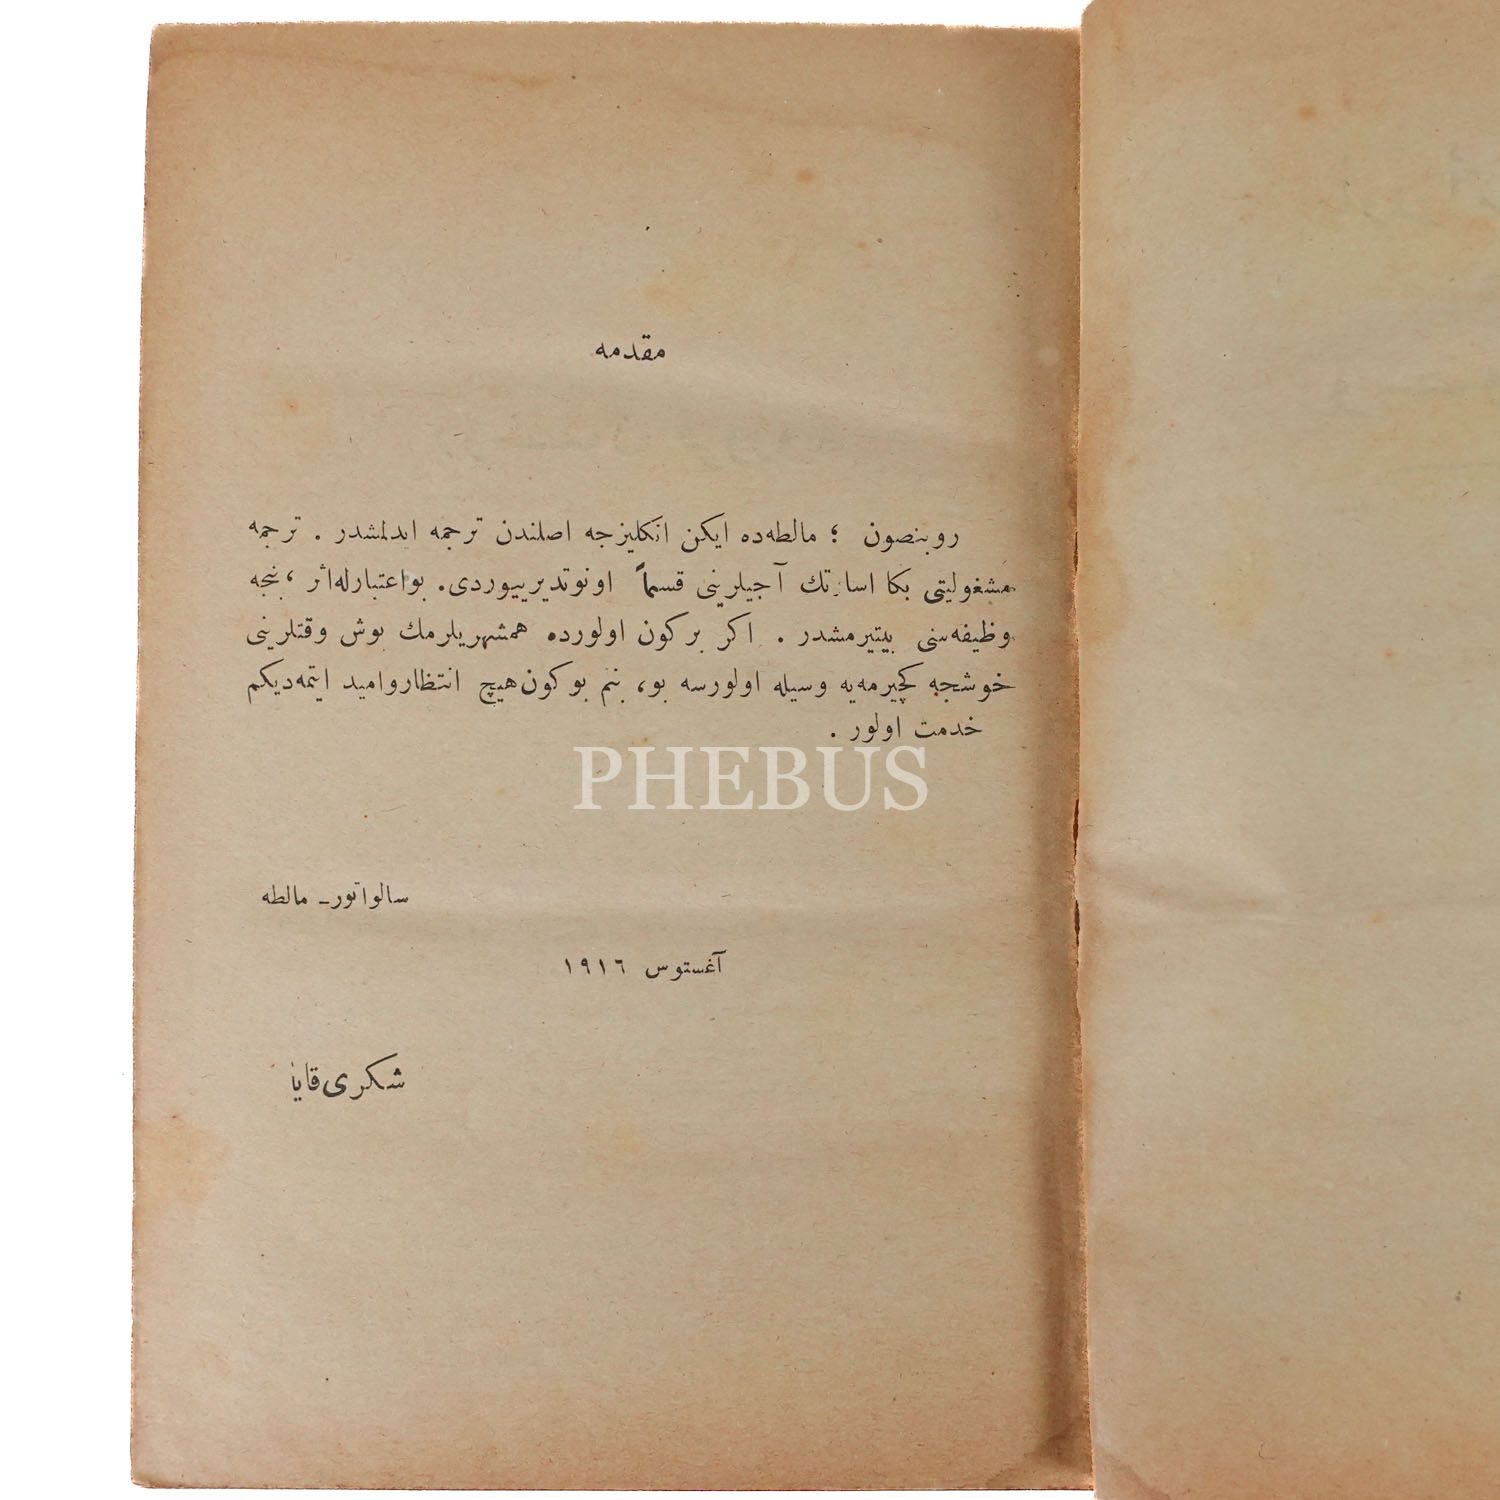 مقدمه
روبنصون ؛ مالطه‌ده ایکن انکلیزجه اصلندن ترجمه ایدلمشدر . ترجمه
مشغولیتی بکا اسارتك آجیلرینی قسماً اونوتدیرییوردی. بواعتبارله‌اثر ، بنجه
وظیفه‌سنی بیتیرمشدر . اکر برکون اولورده همشهریلرمك بوش وقتلرینی
خوشجه کچیرمه‌یه وسیله اولورسه بو، بنم بوکون‌هیچ انتظاروامید ایتمه‌دیکم
خدمت اولور .
PHEBUS
سالواتور ـ مالطه
آغستوس ١٩١٦
شکری قایا